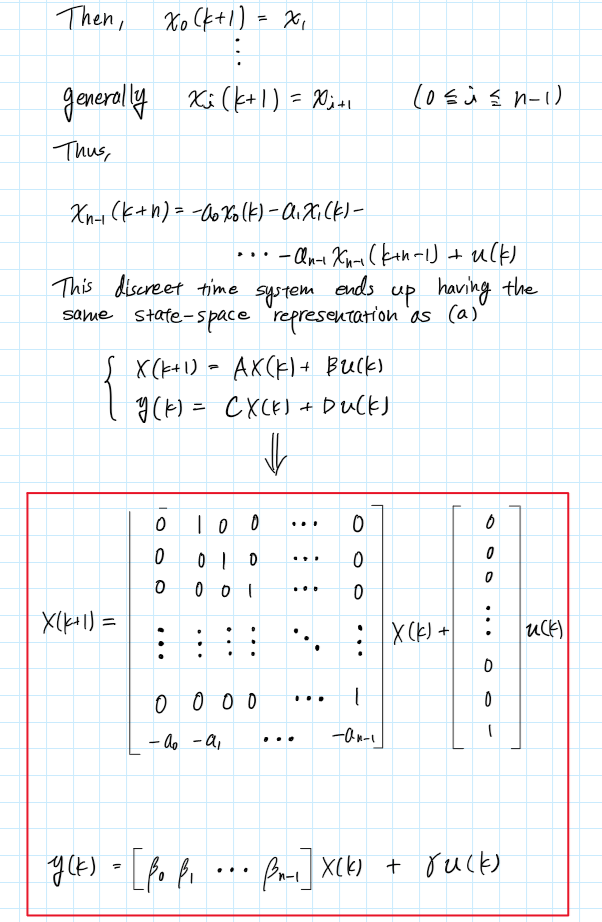 Then, x₀(k+1) = x₁
⋮
generally xᵢ(k+1) = xᵢ₊₁ (0 ≦ i ≦ n-1)
Thus,
xₙ₋₁(k+n) = -a₀x₀(k) - a₁x₁(k) -
⋯ - aₙ₋₁xₙ₋₁(k+n-1) + u(k)
This discreet time system ends up having the
same state-space representation as (a)
{ X(k+1) = AX(k) + Bu(k)
y(k) = CX(k) + Du(k)
⇓
X(k+1) = [ 0 1 0 0 ⋯ 0
0 0 1 0 ⋯ 0
0 0 0 1 ⋯ 0
⋮ ⋮ ⋮ ⋮ ⋱ ⋮
0 0 0 0 ⋯ 1
-a₀ -a₁ ⋯ -aₙ₋₁ ] X(k) + [ 0
0
0
⋮
0
0
1 ] u(k)
y(k) = [β₀ β₁ ⋯ βₙ₋₁] X(k) + γu(k)